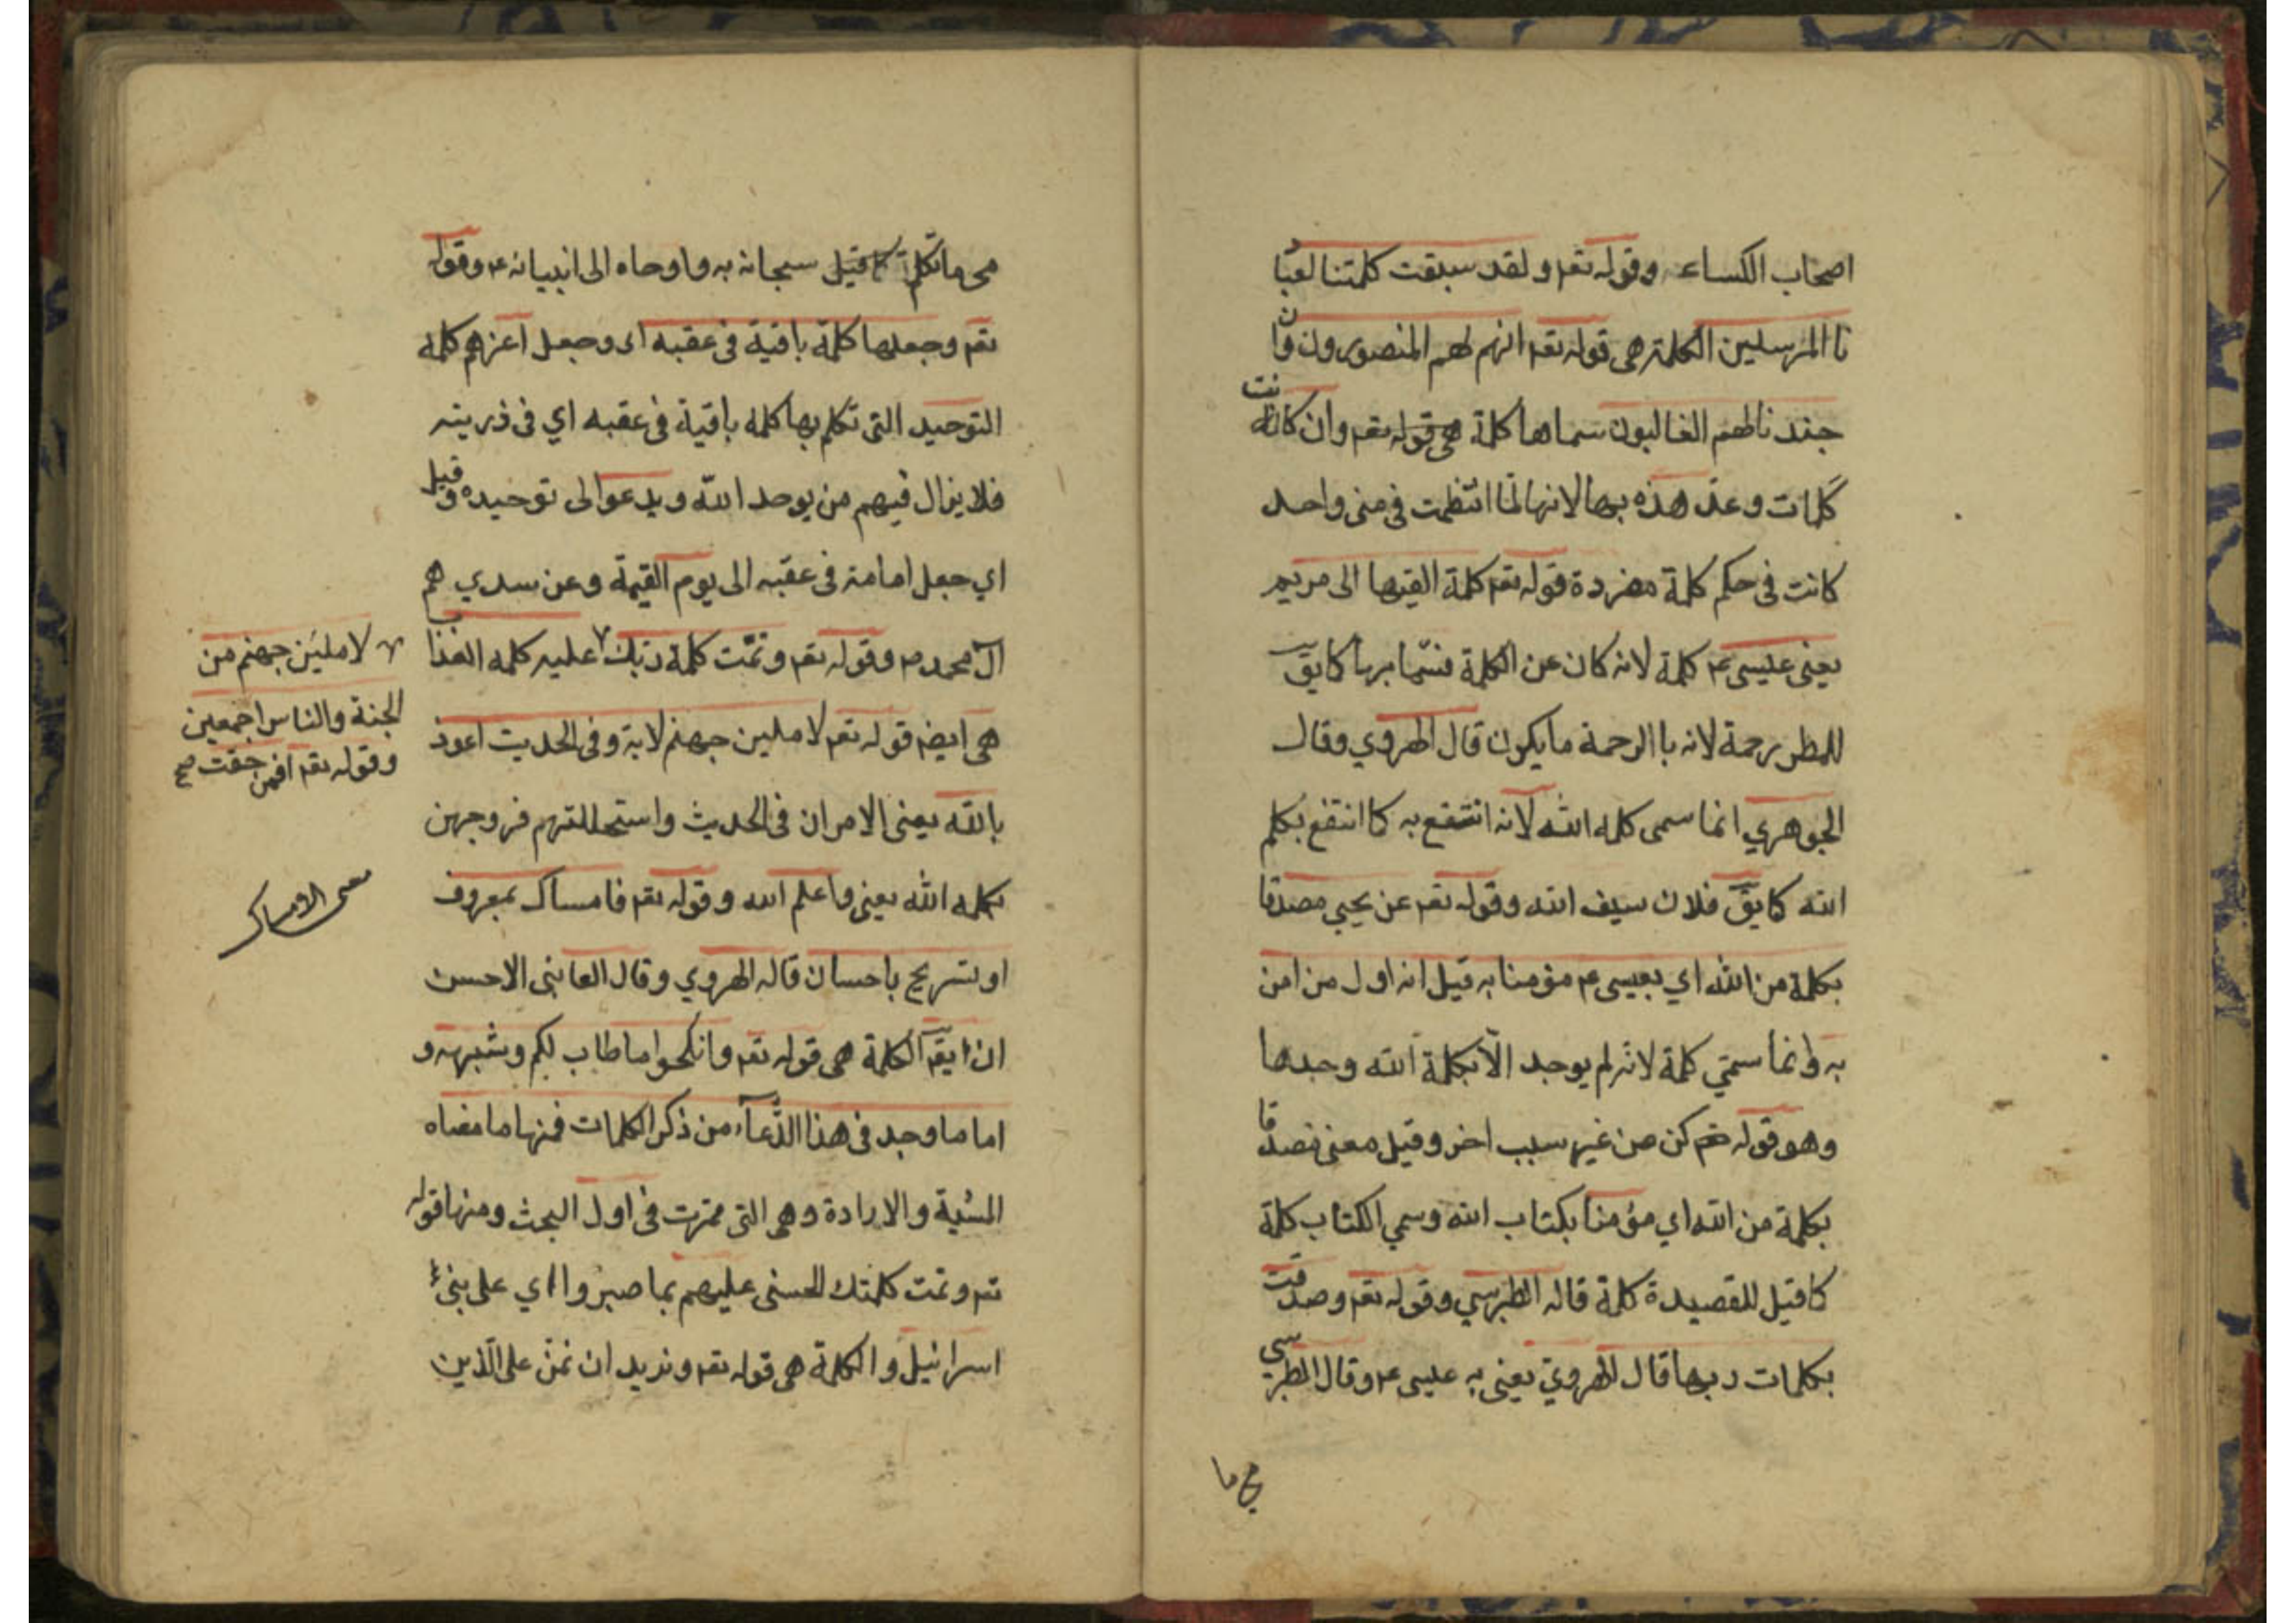 اصحاب الكساء وقوله تعم ولقد سبقت كلمتنا لعبا
نا المرسلين الكلمة هى قوله تعم انهم لهم المنصورون وان
جندنا لهم الغالبون سماها كلمة هى قوله تعم وان كانت
كلمات وعد هذه بها لانها لما انتظمت فى معنى واحد
كانت فى حكم كلمة مفردة قوله تعم كلمة القيها الى مريم
يعنى عليسى ع م كلمة لانه كان عن الكلمة فسما بها كما يق
للمطر رحمة لانه با الرحمة ما يكون قال الهروي وقال
الجوهري انما سمى كلمه الله لانه انتفع به كما انتفع بكلم
الله كما يق فلان سيف الله وقوله تعم عن يحيى مصدقا
بكلمة من الله اي بعيسى ع م مؤمنا به قيل انه اول من امن
به وانما سمى كلمة لانه لم يوجد الا بكلمة الله وحدها
وهو قوله تعم كن من غير سبب اخر وقيل معنى مصدقا
بكلمة من الله اي مؤمنا بكتاب الله وسمي الكتاب كلمة
كما قيل للقصيدة كلمة قاله الطبرسي وقوله تعم وصدقت
بكلمات ربها قال الهروي يعنى به عيسى ع م وقال الطبرسي
هى ما
هى ما تكلم قيل سبحانه به واوحاه الى انبيائه ع م وقوله
تعم وجعلها كلمة باقية فى عقبه اى وجعل كلمه
التوحيد التى تكلم بها كلمه باقية فى عقبه اي فى ذريته
فلا يزال فيهم من يوحد الله ويدعوا الى توحيده وقيل
اي جعل امامته فى عقبه الى يوم القيمة وعن سدي هم
ال محمد م وقوله تعم وتمت كلمة ربك عليه كلمه العذاب
هى ايضم قوله تعم لاملين جهنم لاية وفى الحديث اعوذ
بالله يعنى الامران فى الحديث واستحللتهم فروجهن
بكلمه الله يعنى واعلم الله وقوله تعم فامساك بمعروف
او تسريح باحسان قاله الهروي وقال العاينى الاحسن
ان يق الكلمة هى قوله تعم وانكحوا ما طاب لكم وشبهه و
اما ما وجد فى هذا الدعاء من ذكر الكلمات فمنها ما معناه
المشية والارادة وهى التى مرت فى اول البحث ومنها قوله
تعم وتمت كلمتك الحسنى عليهم بما صبروا اي على بنى
اسرائيل والكلمة هى قوله تعم ونريد ان نمن على الذين
لاملين جهنم من
الجنة والناس اجمعين
وقوله تعم افمن حقت صح
معنى الامساك